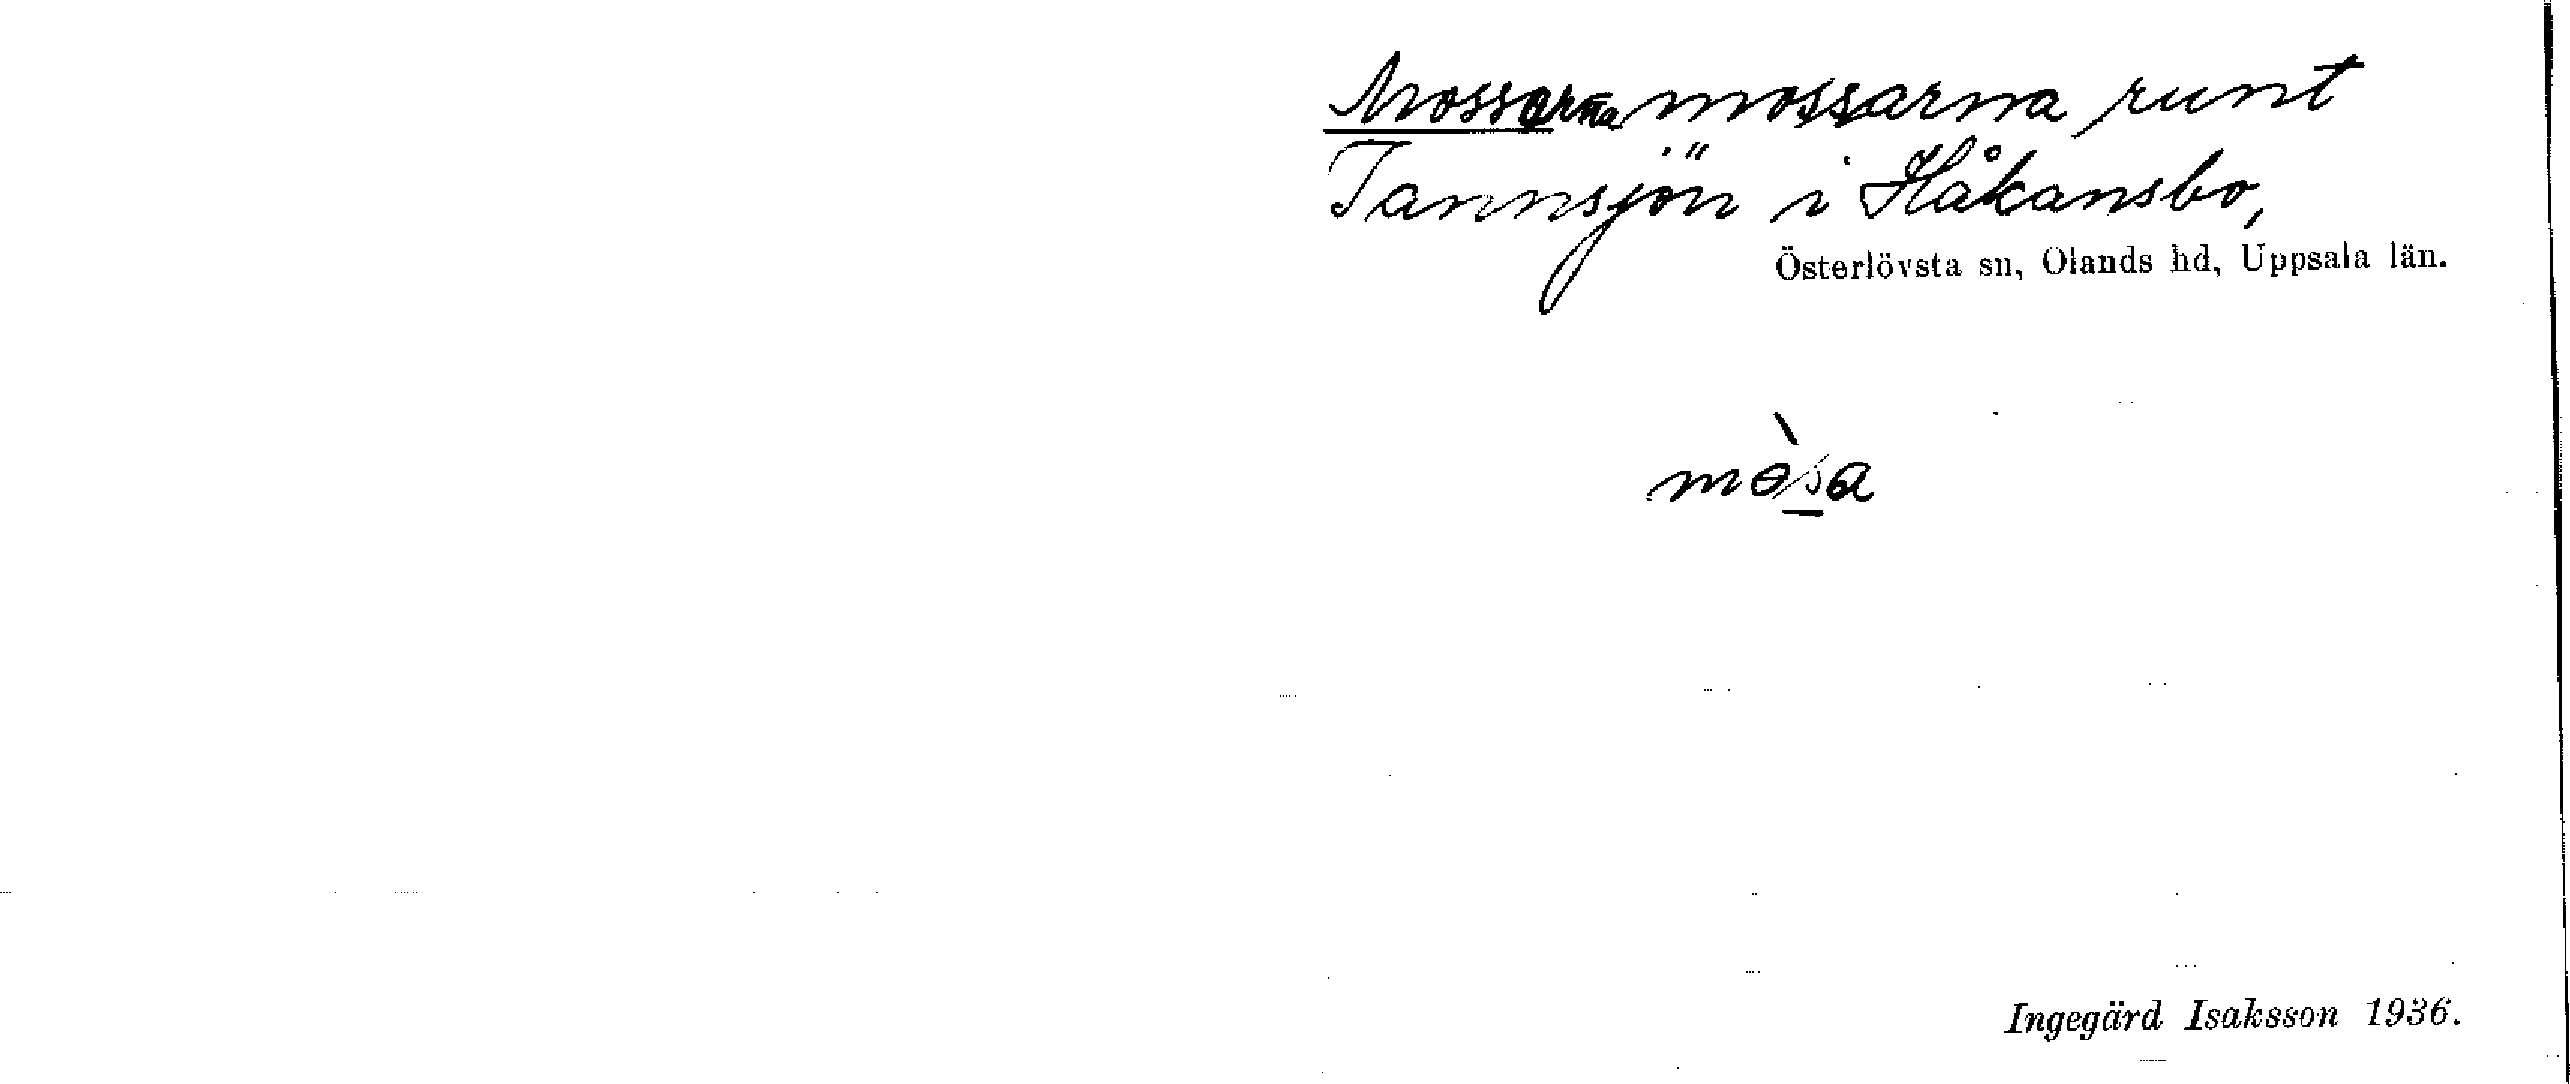 Mossarna mossarna runt
Tannsjön i Håkansbo,
Österlövsta sn, Olands hd, Uppsala län.
mòsa
Ingegärd Isaksson 1936.